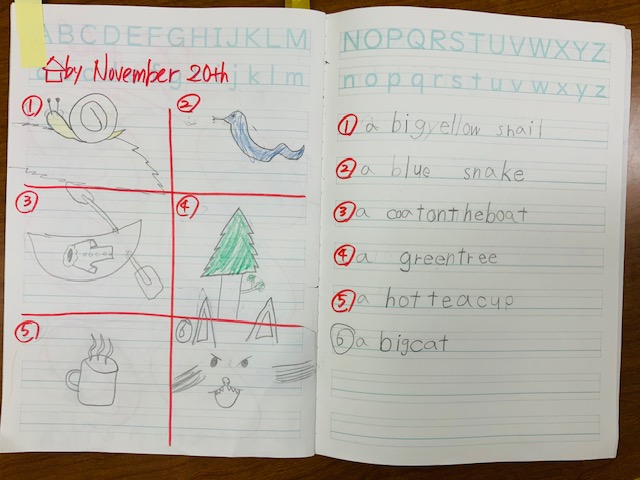 ABCDEFGHIJKLM
by November 20th
jklm
①
②
③
④
⑤
⑥
NOPQRSTUVWXYZ
nopqrstuvwxyz
① a bigyellow snail
② a blue snake
③ a coatontheboat
④ a greentree
⑤ a hot teacup
⑥ a bigcat